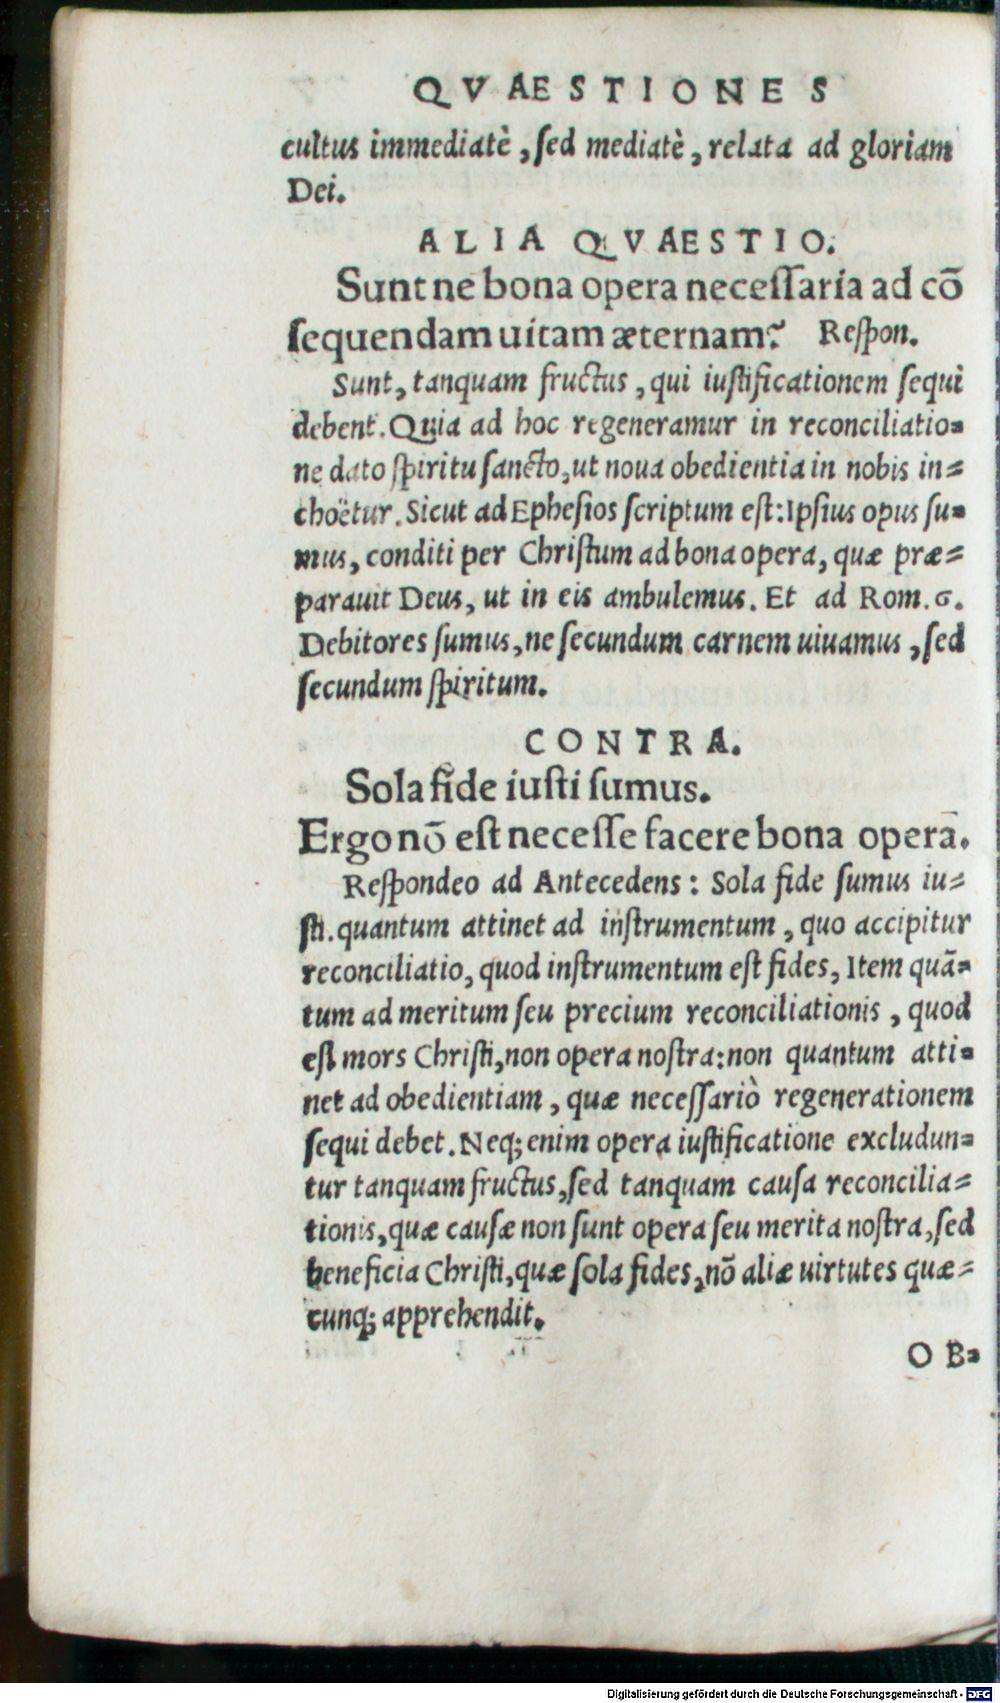 QVAESTIONES
cultus immediatè, ſed mediatè, relata ad gloriam
Dei.
ALIA QVAESTIO.
Sunt ne bona opera neceſſaria ad cõ
ſequendam uitam æternam? Reſpon.
Sunt, tanquam fructus, qui iuſtificationem ſequi
debent. Quia ad hoc regeneramur in reconciliatio-
ne dato ſpiritu ſancto, ut noua obedientia in nobis in-
choëtur. Sicut ad Epheſios ſcriptum eſt: Ipſius opus ſu-
mus, conditi per Chriſtum ad bona opera, quæ præ-
parauit Deus, ut in eis ambulemus. Et ad Rom. 6.
Debitores ſumus, ne ſecundum carnem uiuamus, ſed
ſecundum ſpiritum.
CONTRA.
Sola fide iuſti ſumus.
Ergo nõ eſt neceſſe facere bona opera.
Reſpondeo ad Antecedens: Sola fide ſumus iu-
ſti. quantum attinet ad inſtrumentum, quo accipitur
reconciliatio, quod inſtrumentum eſt fides, Item quã-
tum ad meritum ſeu precium reconciliationis, quod
eſt mors Chriſti, non opera noſtra: non quantum atti-
net ad obedientiam, quæ neceſſariò regenerationem
ſequi debet. Neq; enim opera iuſtificatione excludun-
tur tanquam fructus, ſed tanquam cauſa reconcilia-
tionis, quæ cauſæ non ſunt opera ſeu merita noſtra, ſed
beneficia Chriſti, quæ ſola fides, nõ aliæ uirtutes quæ-
cunq; apprehendit.
OB-
Digitalisierung gefördert durch die Deutsche Forschungsgemeinschaft - DFG